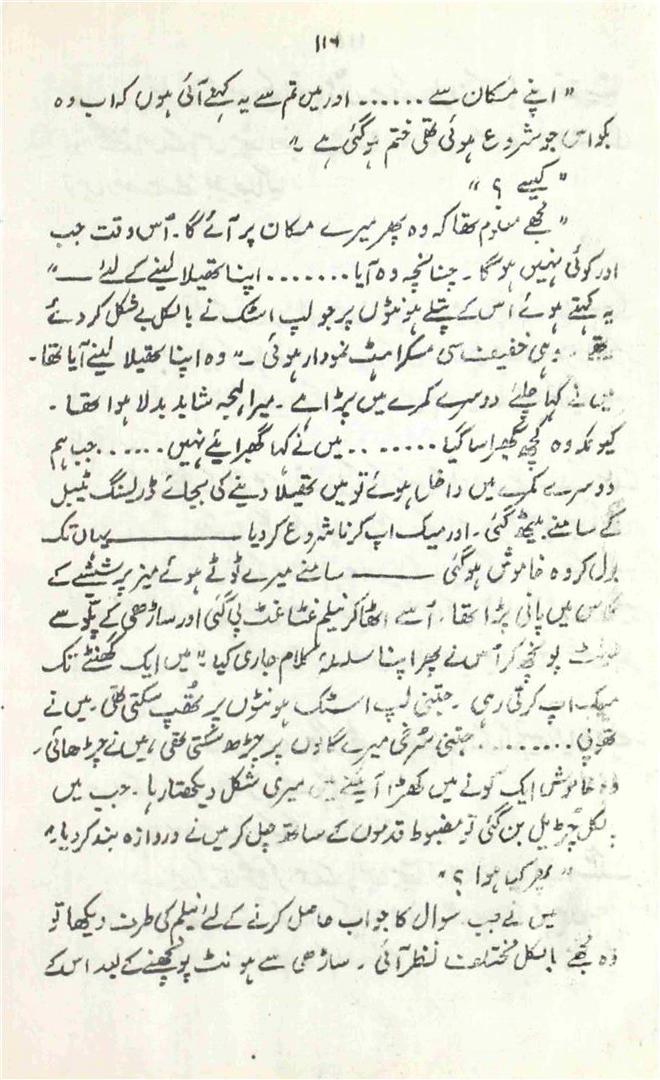 ۱۱۶
" اپنے مکان سے ...... اور میں تم سے یہ کہنے آئی ہوں کہ اب وہ
بکواس جو شروع ہوئی تھی ختم ہو گئی ہے ۔"
" کیسے ؟ "
" مجھے معلوم تھا کہ وہ پھر میرے مکان پر آئے گا ۔ اُس وقت جب
اور کوئی نہیں ہو گا ۔ چنانچہ وہ آیا ....... اپنا تھیلا لینے کے لئے ـــ "
یہ کہتے ہوئے اس کے پتلے ہونٹوں پر جو لپ اسٹک نے بالکل بے شکل کر دئے
تھے ۔ وہی خفیف سی مسکراہٹ نمودار ہوئی ۔" وہ اپنا تھیلا لینے آیا تھا ۔
میں نے کہا چلئے دوسرے کمرے میں پڑا ہے ۔ میرا لہجہ شاید بدلا ہوا تھا ۔
کیونکہ وہ کچھ گھبرا سا گیا ....... میں نے کہا گھبرایئے نہیں ...... جب ہم
دوسرے کمرے میں داخل ہوئے تو میں تھیلا دینے کی بجائے ڈریسنگ ٹیبل
کے سامنے بیٹھ گئی ۔ اور میک اپ کرنا شروع کر دیا ـــــــــ یہاں تک
بول کر وہ خاموش ہو گئی ـــــــ سامنے میرے ٹوٹے ہوئے میز پر شیشے کے
گلاس میں پانی پڑا تھا ۔ اُسے اٹھا کر نیلم غٹا غٹ پی گئی اور ساڑھی کے پلّو سے
ہونٹ پونچھ کر اُس نے پھر اپنا سلسلۂ کلام جاری کیا ۔" میں ایک گھنٹے تک
میک اپ کرتی رہی ۔ جتنی لپ اسٹک ہونٹوں پر تھُپ سکتی تھی ۔ میں نے
تھوپی ........ جتنی سُرخی میرے گالوں پر چڑھ سکتی تھی ، میں نے چڑھائی ۔
وہ خاموش ایک کونے میں کھڑا آئینے میں میری شکل دیکھتا رہا ۔ جب میں
بالکل چڑیل بن گئی تو مضبوط قدموں کے ساتھ چل کر میں نے دروازہ بند کر دیا ۔"
" پھر کیا ہوا ؟ "
میں نے جب سوال کا جواب حاصل کرنے کے لئے نیلم کی طرف دیکھا تو
وہ مجھے بالکل مختلف نظر آئی ۔ ساڑھی سے ہونٹ پونچھنے کے بعد اس کے